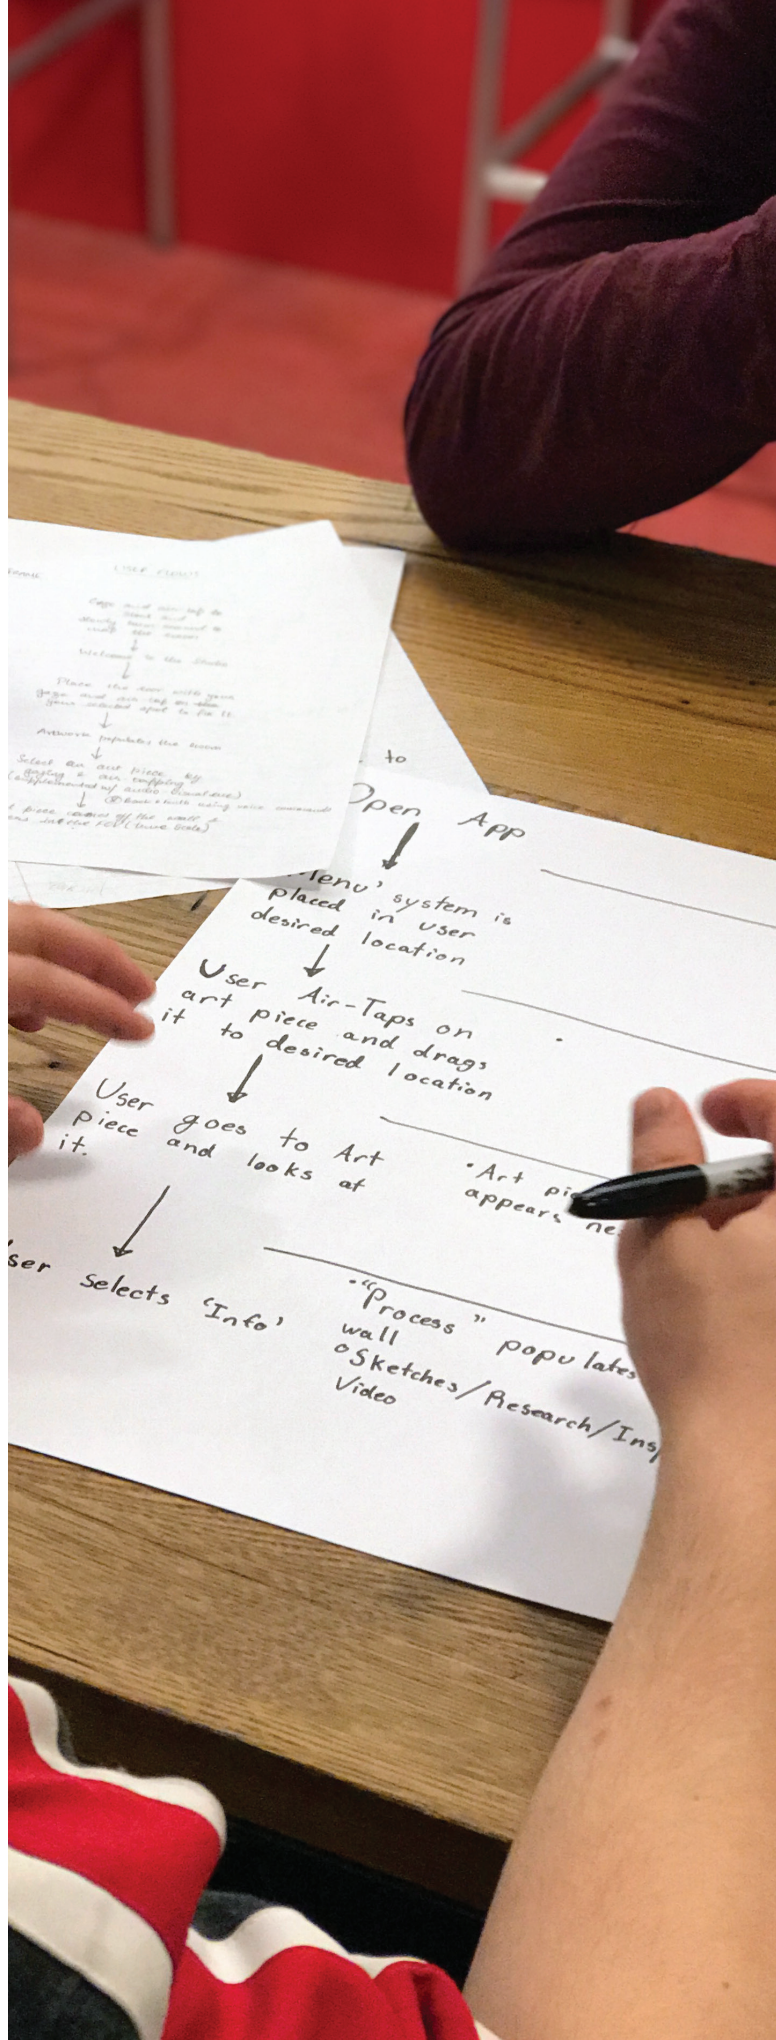 USER FLOWS
Gaze and air tap to
Welcome to the Studio
Place the door with your
gaze and air tap on
your selected spot to fix it
Artwork populates the room
Select an art piece by
gazing & air tapping
(supplemented w/ audio
using voice commands
piece comes off the wall &
to
Open App
Menu' system is
placed in user
desired location
User Air-Taps on
art piece and drags
it to desired location
User goes to Art
piece and looks at
it.
• Art
appears
User selects 'Info'
• "Process" populates
wall
○ Sketches/Research/
Video